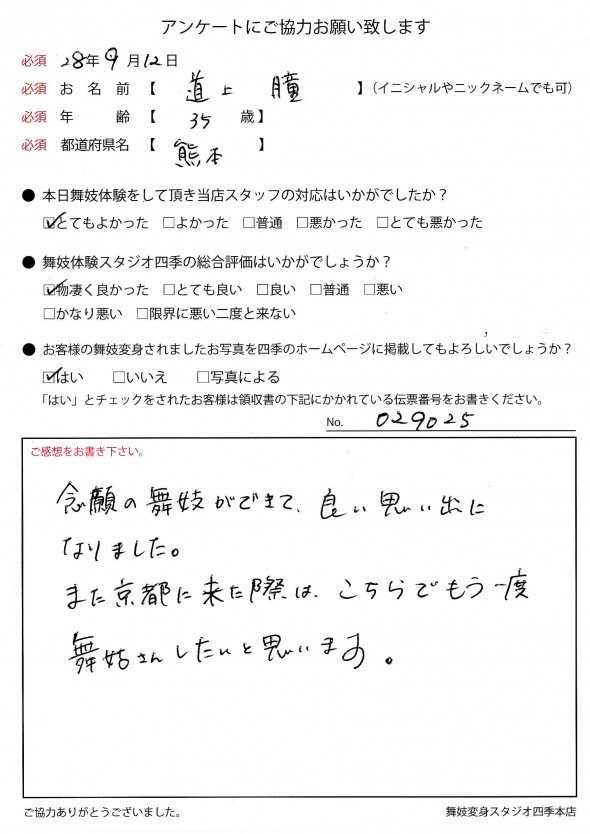 アンケートにご協力お願い致します
必須 28年9月12日
必須 お名前【 道上 瞳 】（イニシャルやニックネームでも可）
必須 年齢【 35 歳】
必須 都道府県名【 熊本 】
● 本日舞妓体験をして頂き当店スタッフの対応はいかがでしたか？
☑とてもよかった □よかった □普通 □悪かった □とても悪かった
● 舞妓体験スタジオ四季の総合評価はいかがでしょうか？
☑物凄く良かった □とても良い □良い □普通 □悪い
□かなり悪い □限界に悪い二度と来ない
● お客様の舞妓変身されましたお写真を四季のホームページに掲載してもよろしいでしょうか？
☑はい □いいえ □写真による
「はい」とチェックをされたお客様は領収書の下記にかかれている伝票番号をお書きください。
No. 029025
ご感想をお書き下さい。
念願の舞妓ができて、良い思い出に
なりました。
また京都に来た際は、こちらでもう一度
舞妓さんしたいと思います。
ご協力ありがとうございました。
舞妓変身スタジオ四季本店